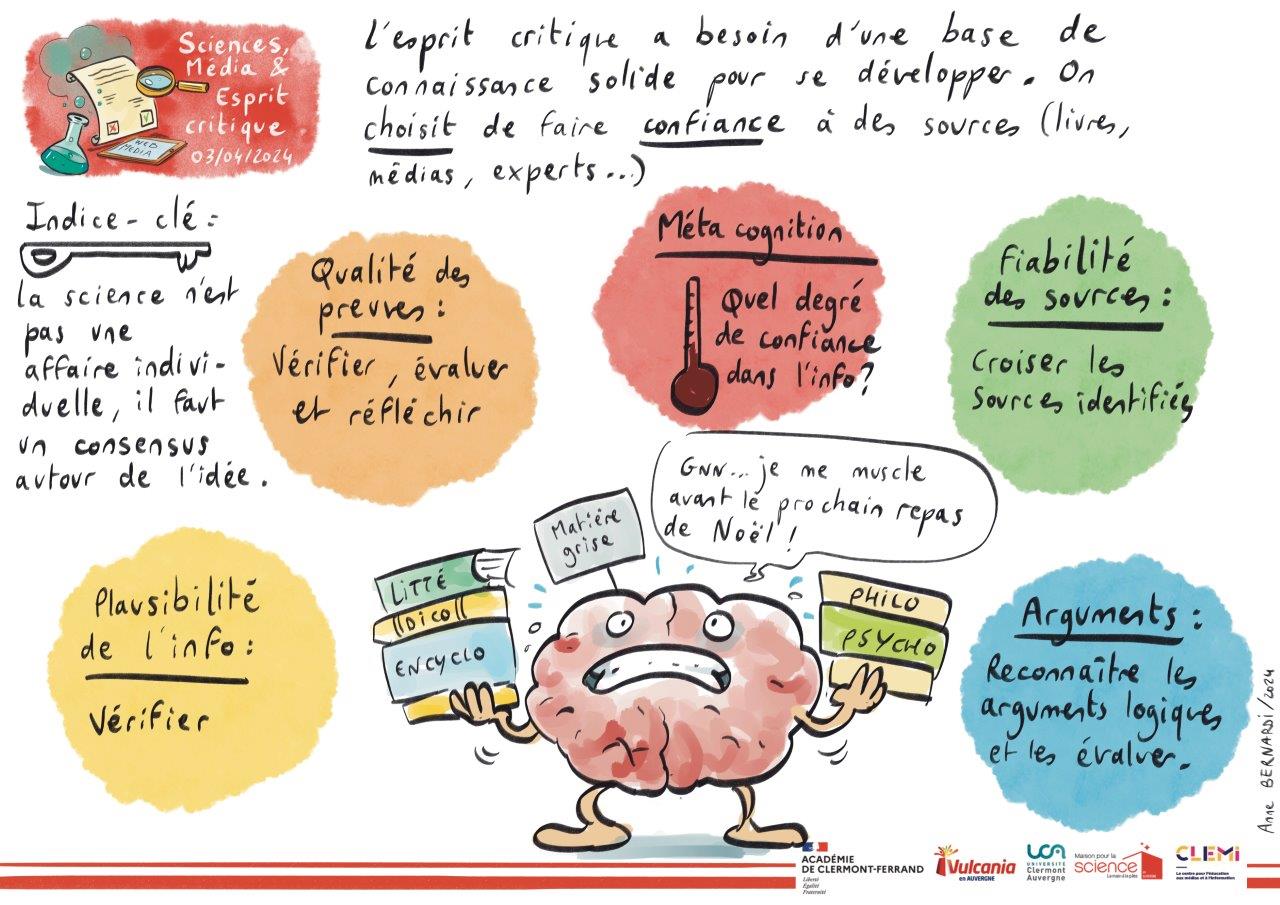 Sciences,
Média &
Esprit
critique
03/04/2024
WEB
MEDIA
L'esprit critique a besoin d'une base de
connaissance solide pour se développer. On
choisit de faire confiance à des sources (livres,
médias, experts...)
Indice-clé :
la science n'est
pas une
affaire indivi-
duelle, il faut
un consensus
autour de l'idée.
Qualité des
preuves :
Vérifier, évaluer
et réfléchir
Méta cognition
Quel degré
de confiance
dans l'info?
Fiabilité
des sources :
Croiser les
sources identifiés
Plausibilité
de l'info :
Vérifier
Matière
grise
GNN... je me muscle
avant le prochain repas
de Noël !
LITTÉ
DICO
ENCYCLO
PHILO
PSYCHO
Arguments :
Reconnaître les
arguments logiques
et les évaluer.
Anne BERNARDI/2024
ACADÉMIE
DE CLERMONT-FERRAND
Liberté
Égalité
Fraternité
Vulcania
EN AUVERGNE
UCA
UNIVERSITÉ
Clermont
Auvergne
Maison pour la
science
CLEMI
Le centre pour l'éducation
aux médias et à l'information